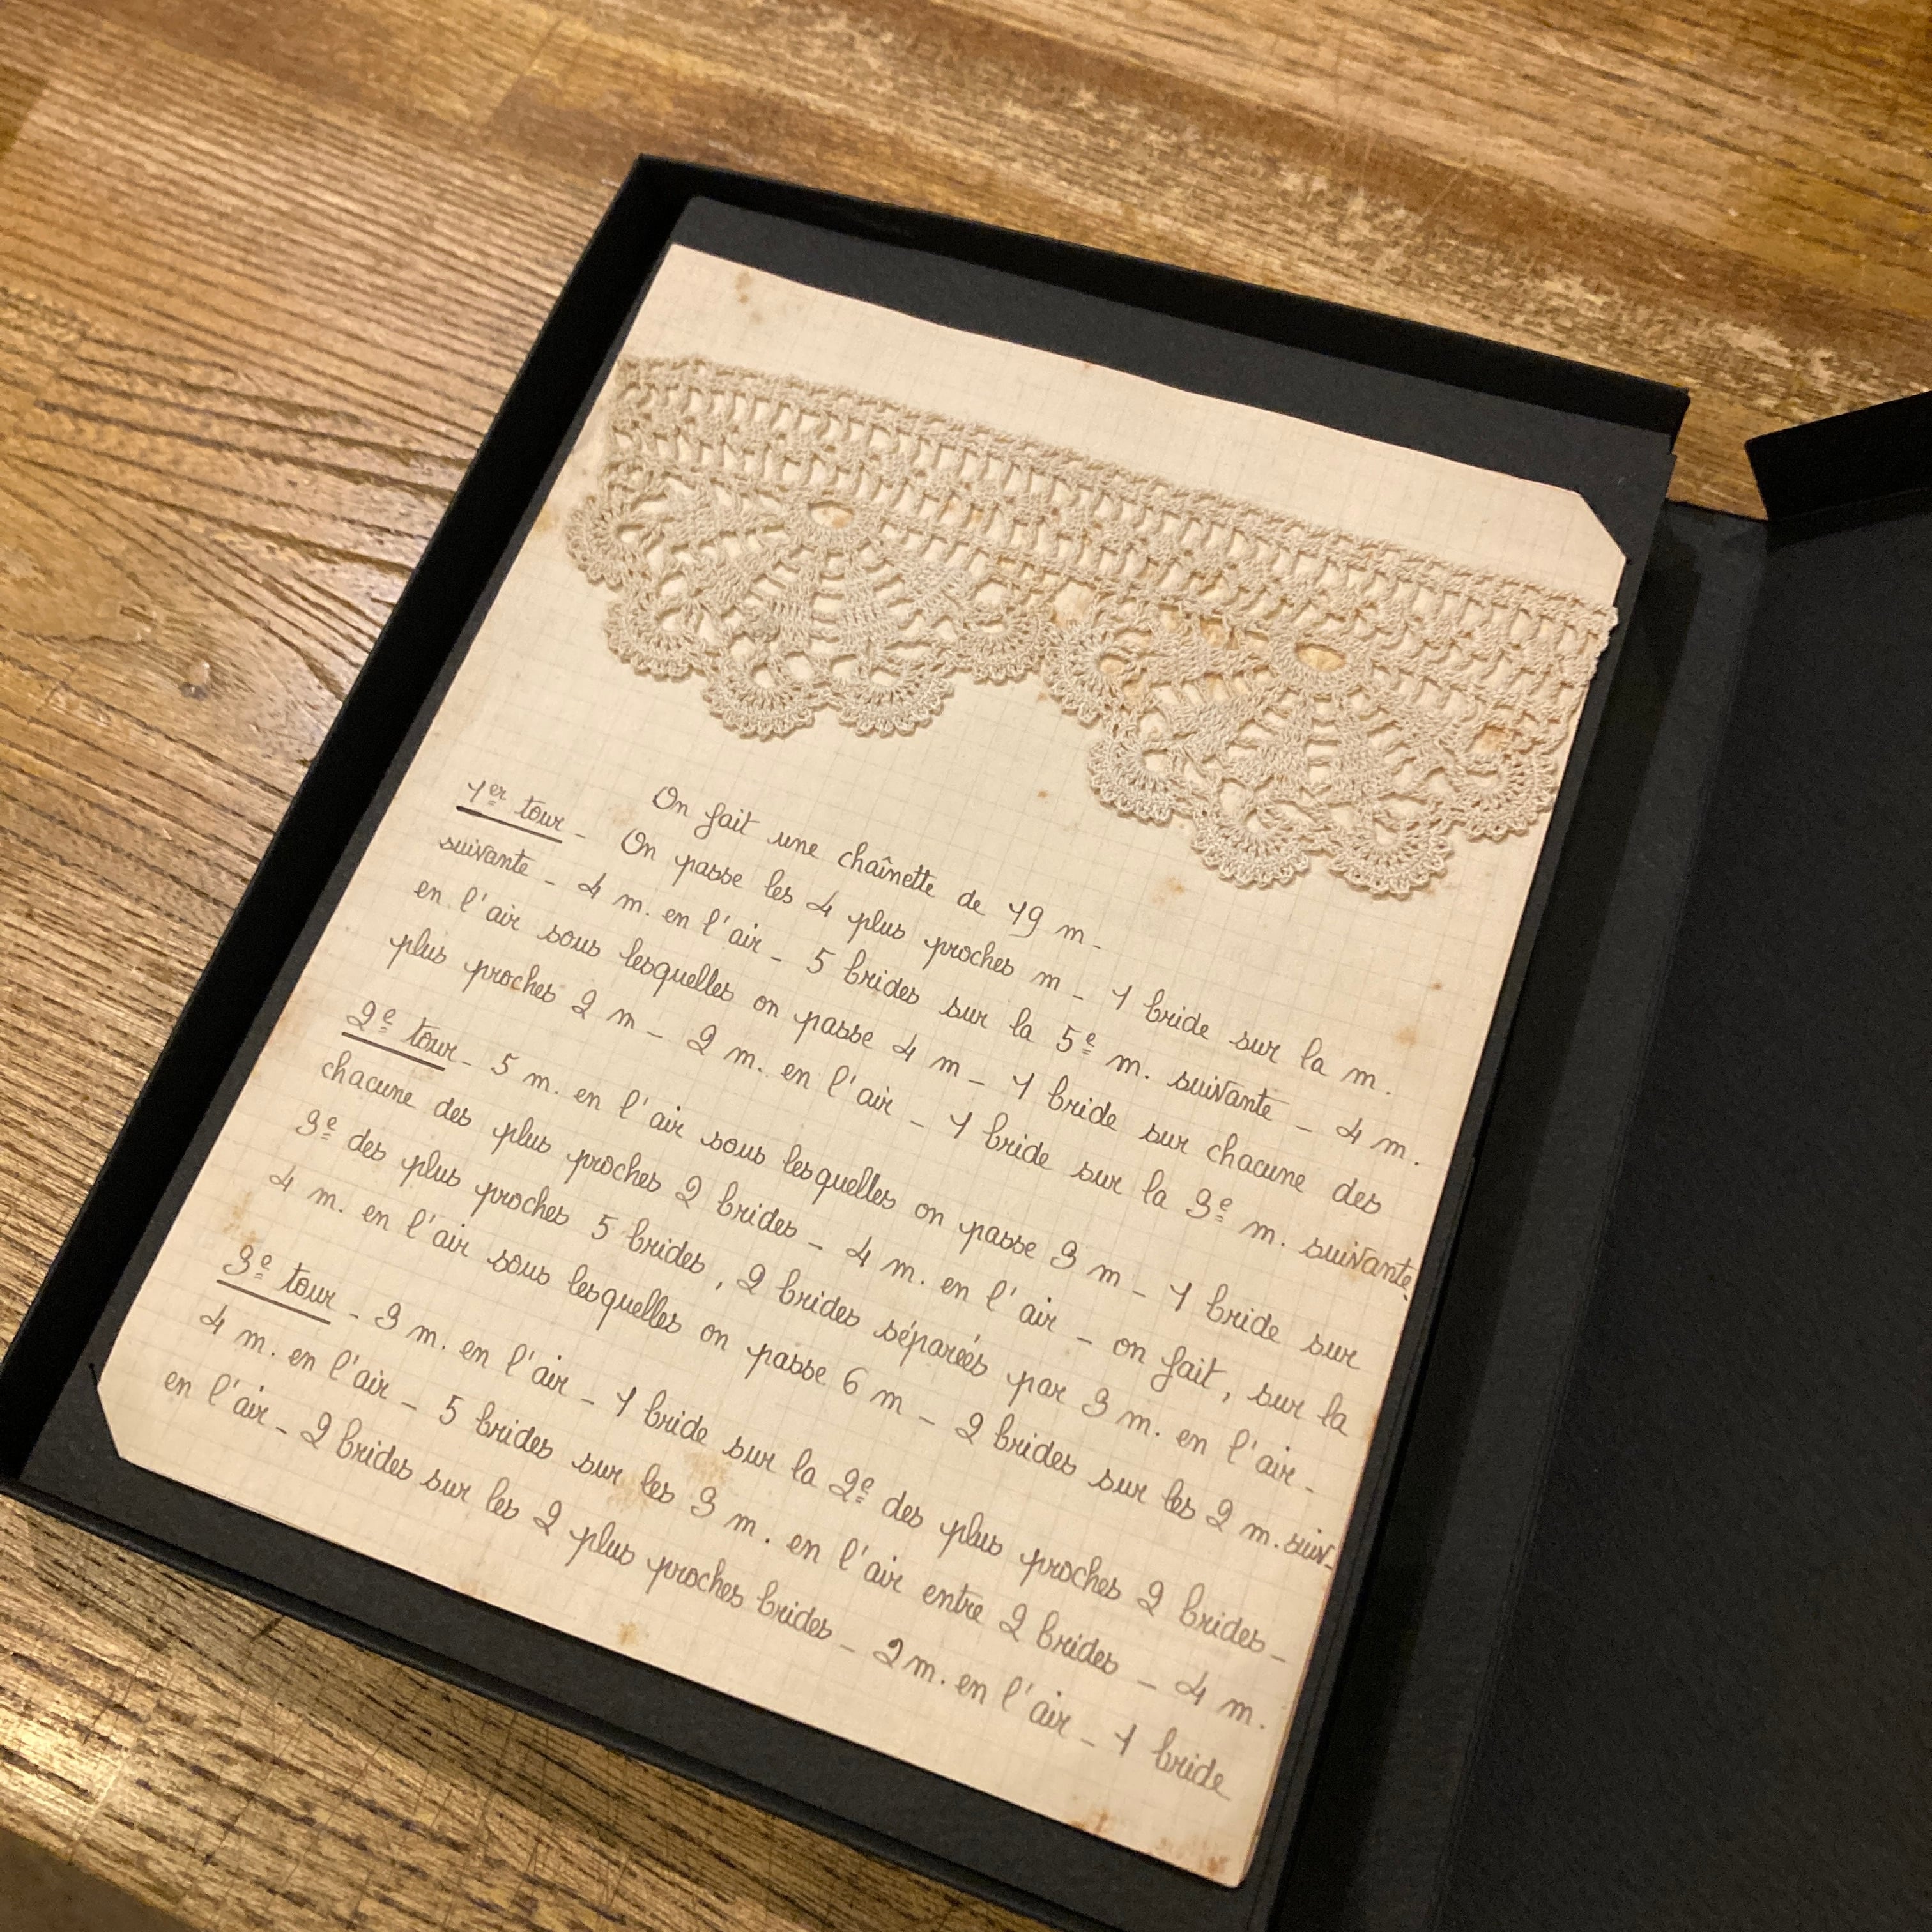 On fait une chaînette de 19 m_
1er tour_ On passe les 4 plus proches m_ 1 bride sur la m.
suivante_ 4 m. en l'air_ 5 brides sur la 5e m. suivante_ 4 m.
en l'air sous lesquelles on passe 4 m_ 1 bride sur chacune des
plus proches 2 m_ 2 m. en l'air_ 1 bride sur la 3e m. suivante.
2e tour_ 5 m. en l'air sous lesquelles on passe 3 m_ 1 bride sur
chacune des plus proches 2 brides_ 4 m. en l'air_ on fait, sur la
3e des plus proches 5 brides, 2 brides séparées par 3 m. en l'air_
4 m. en l'air sous lesquelles on passe 6 m_ 2 brides sur les 2 m. suiv_
3e tour_ 3 m. en l'air_ 1 bride sur la 2e des plus proches 2 brides_
4 m. en l'air_ 5 brides sur les 3 m. en l'air entre 2 brides_ 4 m.
en l'air_ 2 brides sur les 2 plus proches brides_ 2 m. en l'air_ 1 bride